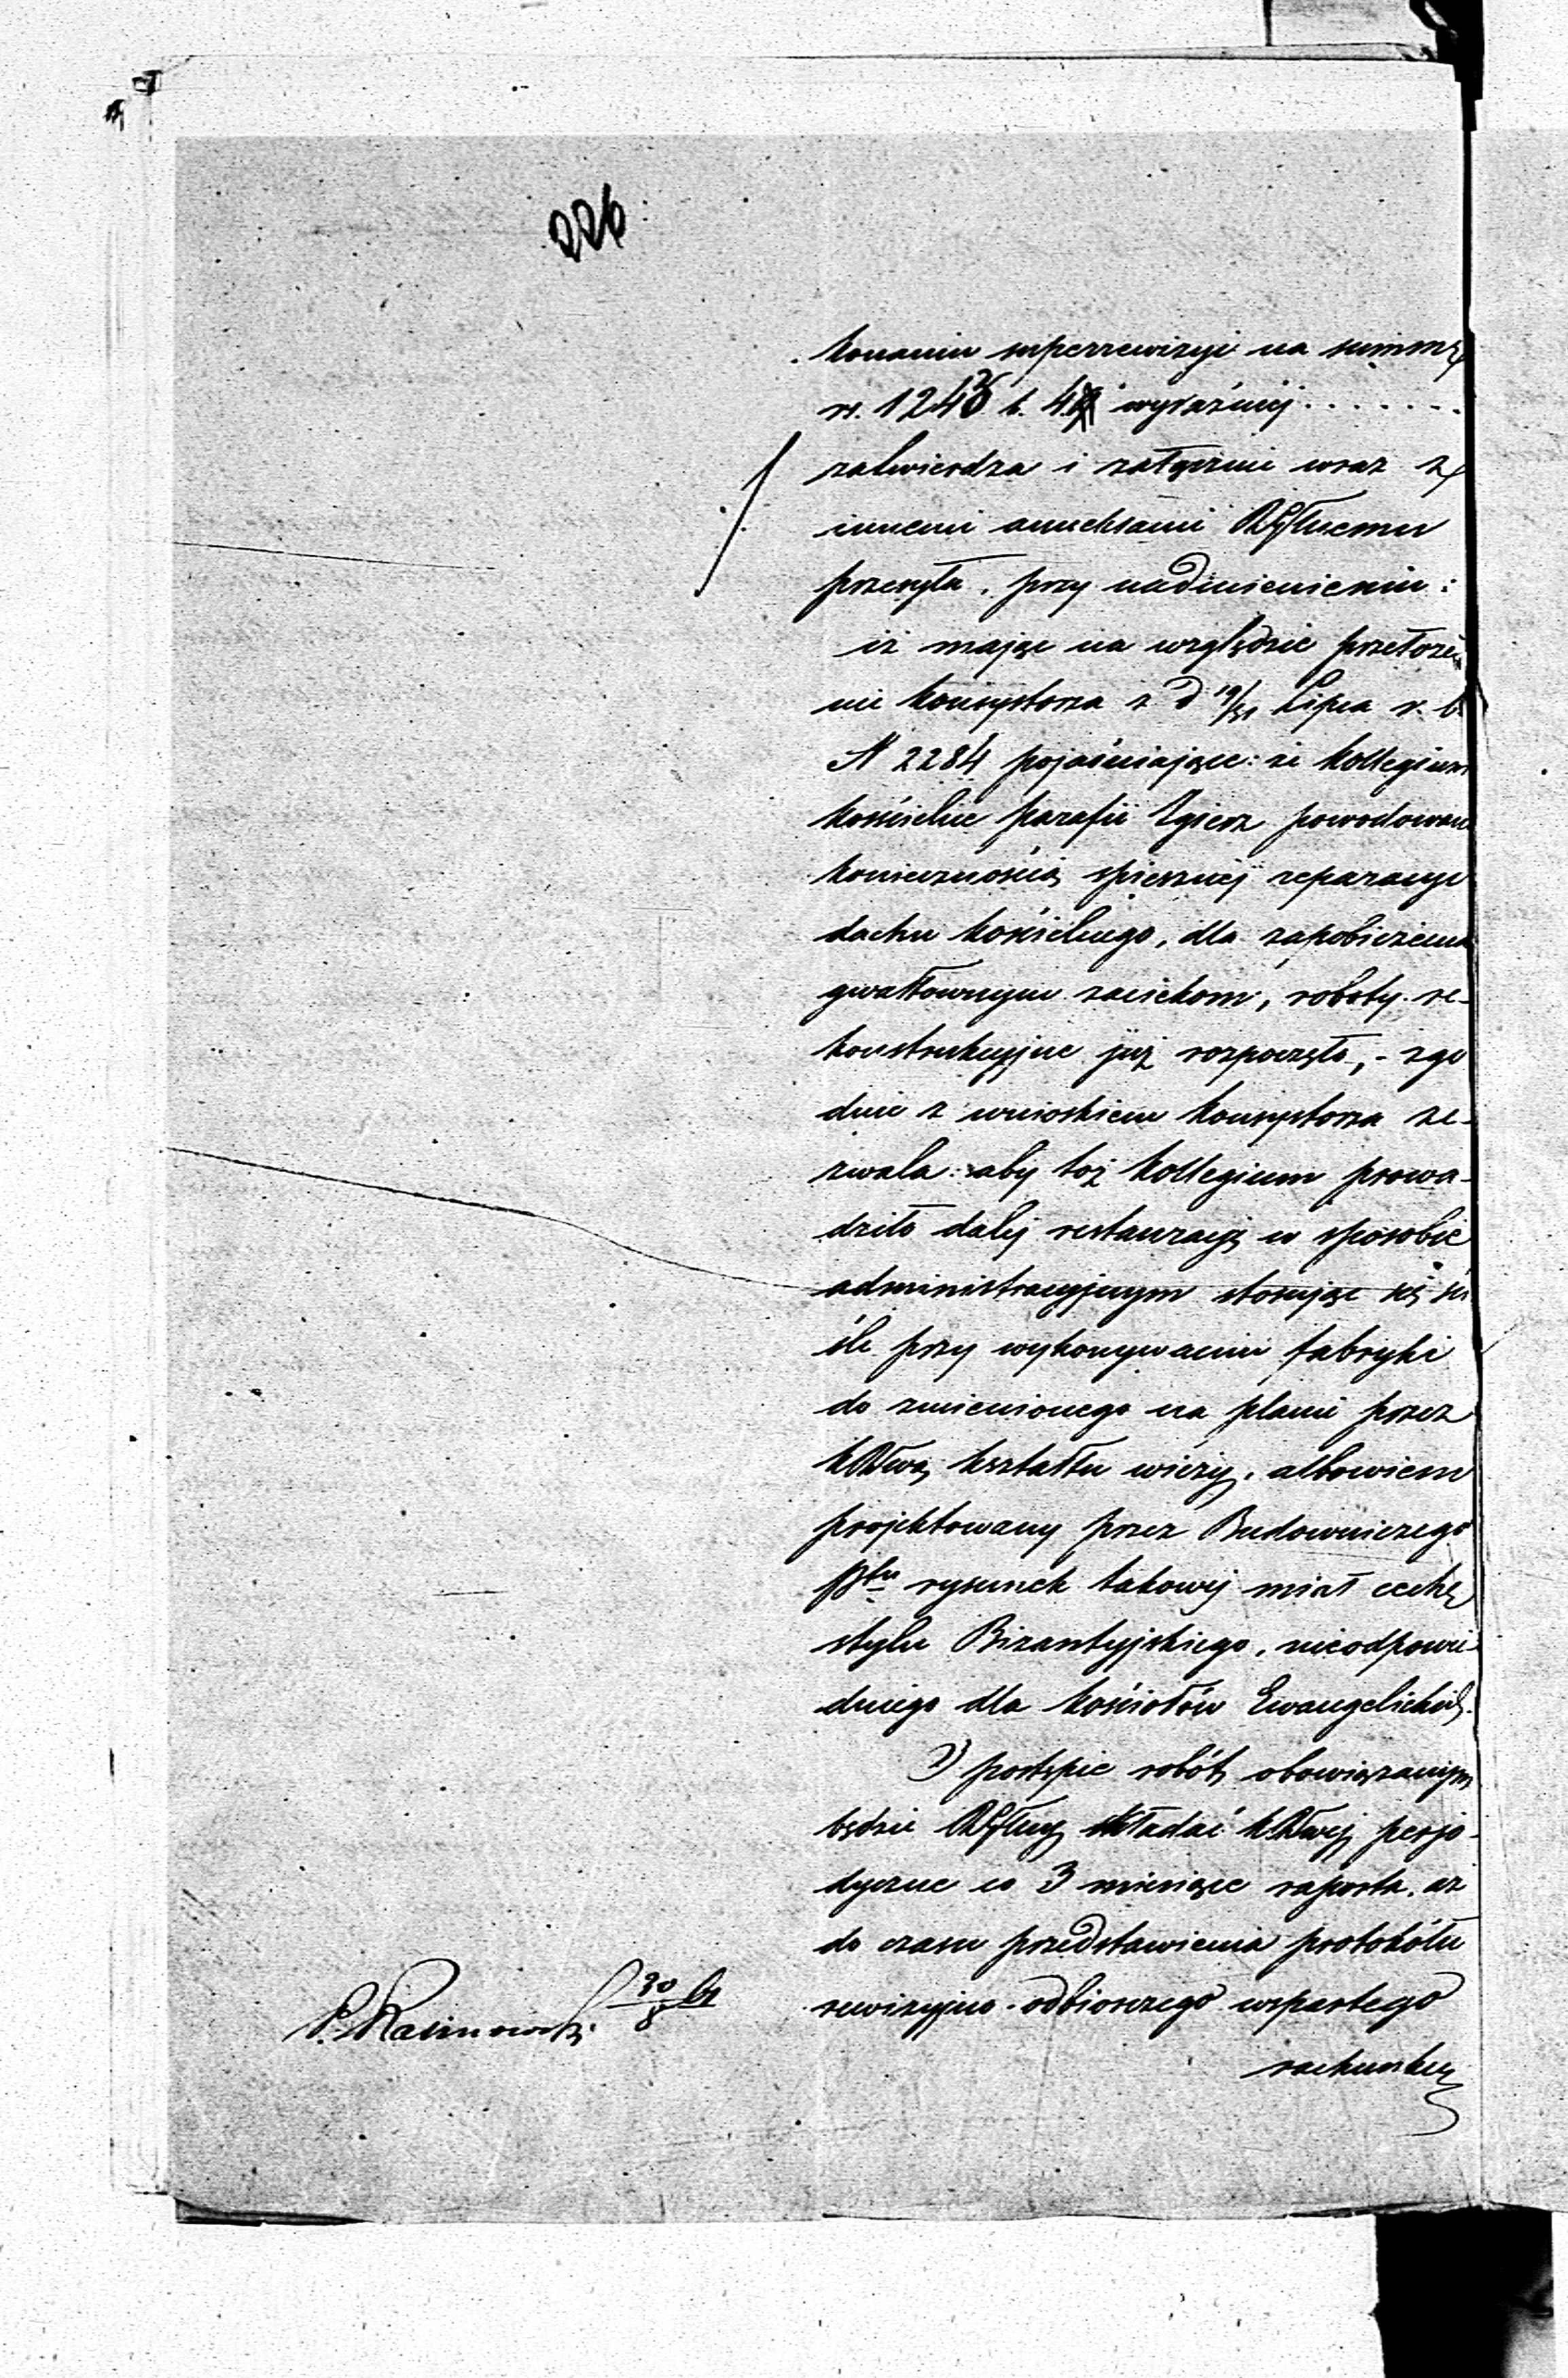 226
konaniu superrewizyi na summę
rs. 1243 k. 4 wyraźniej .......
zatwierdza i załącznie wraz z
innemi annexami RGłnemu
przesyła, przy nadmienieniu:
iż mając na względzie przełoże
nie konsystorza z d 19/31 Lipca r. b.
N 2284 pojaśniające: że kollegium
kościelne parafii Zgierz powodowane
koniecznością spiesznej reparacyi
dachu kościelnego, dla zapobieżenia
gwałtownym zaciekom, roboty re-
konstrukcyjne już rozpoczęło, - zgo
dnie z wnioskiem konsystorza ze-
zwala: aby toż kollegium prowa-
dziło dalej restauracyę w sposobie
administracyjnym stosując się ści
śle przy wykonywaniu fabryki
do zmienionego na planie przez
KRwą kształtu wieży, albowiem
projektowany przez Budowniczego
Ptu rysunek takowej miał cechę
stylu Bizantyjskiego, nieodpowie
dniego dla kościołów Ewangelickich.
O postępie robót, obowiązanym
będzie RGłny składać KRwej perjo-
dyczne co 3 miesiące raporta, aż
do czasu przedstawienia protokółu
rewizyjno-odbiorczego wspartego
rachunku
30/8